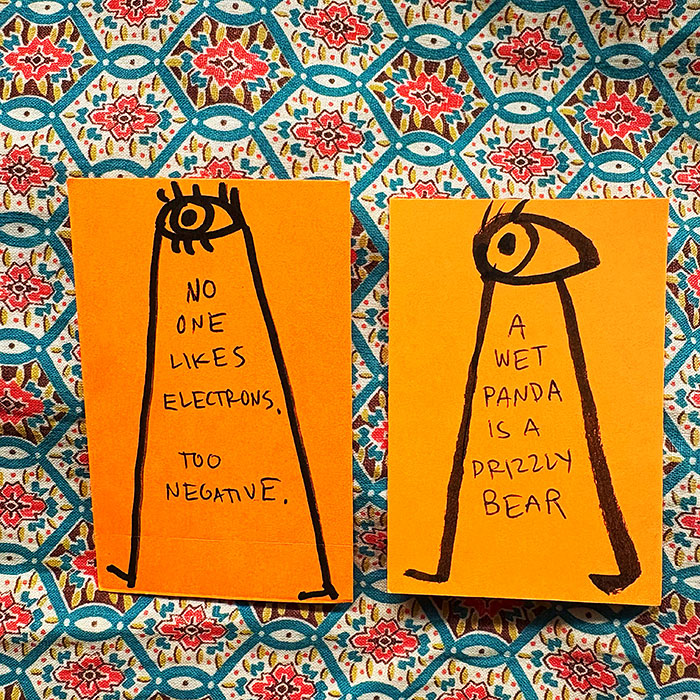 NO
ONE
LIKES
ELECTRONS.
TOO
NEGATIVE.
A
WET
PANDA
IS A
DRIZZLY
BEAR